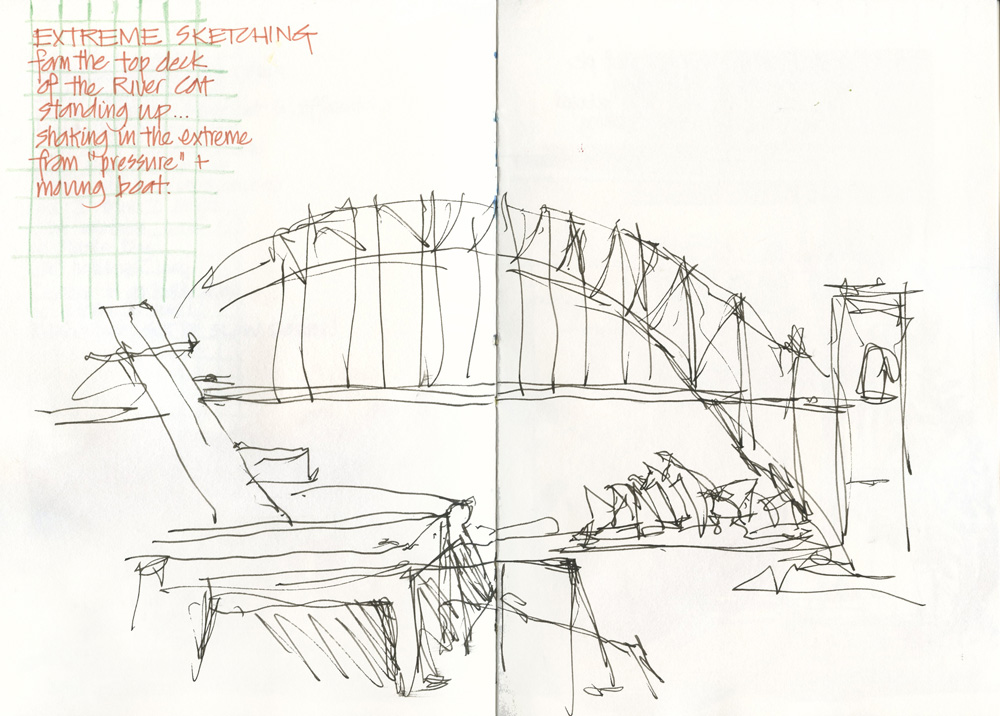 EXTREME SKETCHING
fom the top deck
of the River Cat
standing up...
shaking in the extreme
from "pressure" +
moving boat.